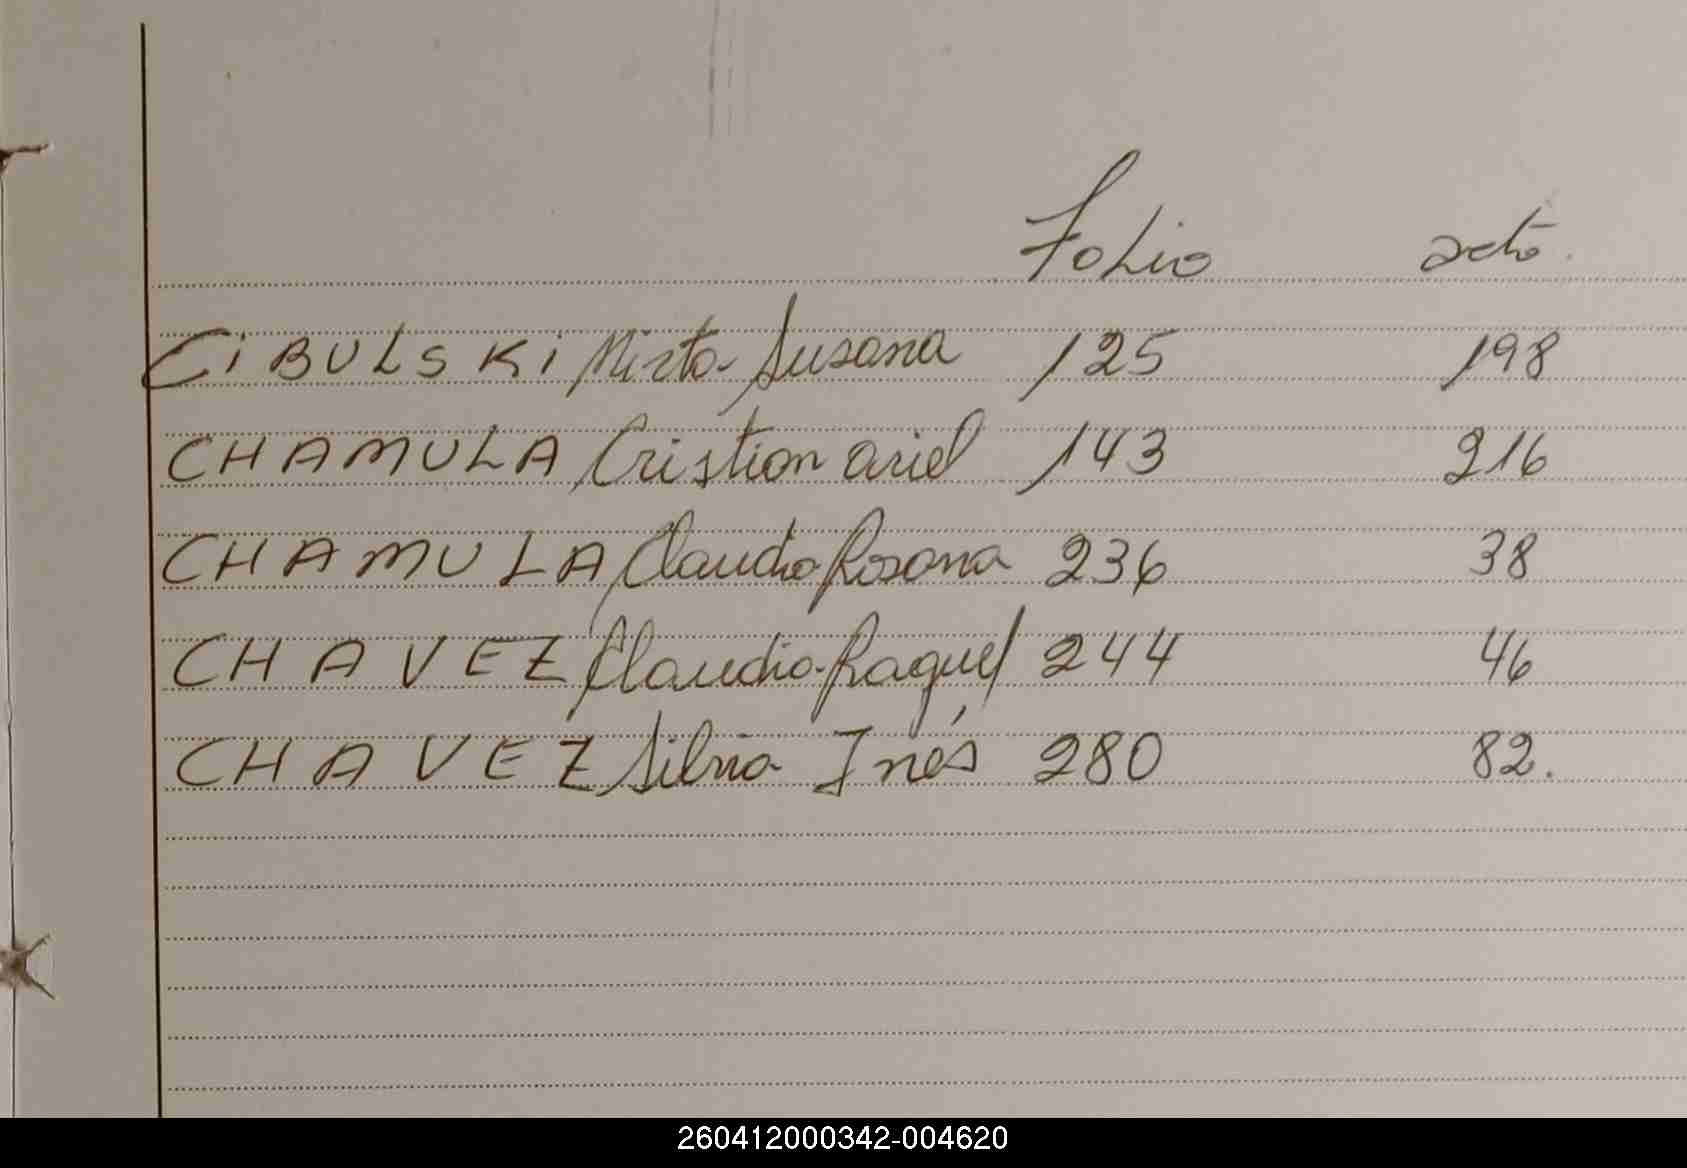 Folio acta.
CIBULSKI Mirta Susana 125 198
CHAMULA Cristian Ariel 143 216
CHAMULA Claudia Rosana 236 38
CHAVEZ Claudia Raquel 244 46
CHAVEZ Silvia Inés 280 82.
260412000342-004620